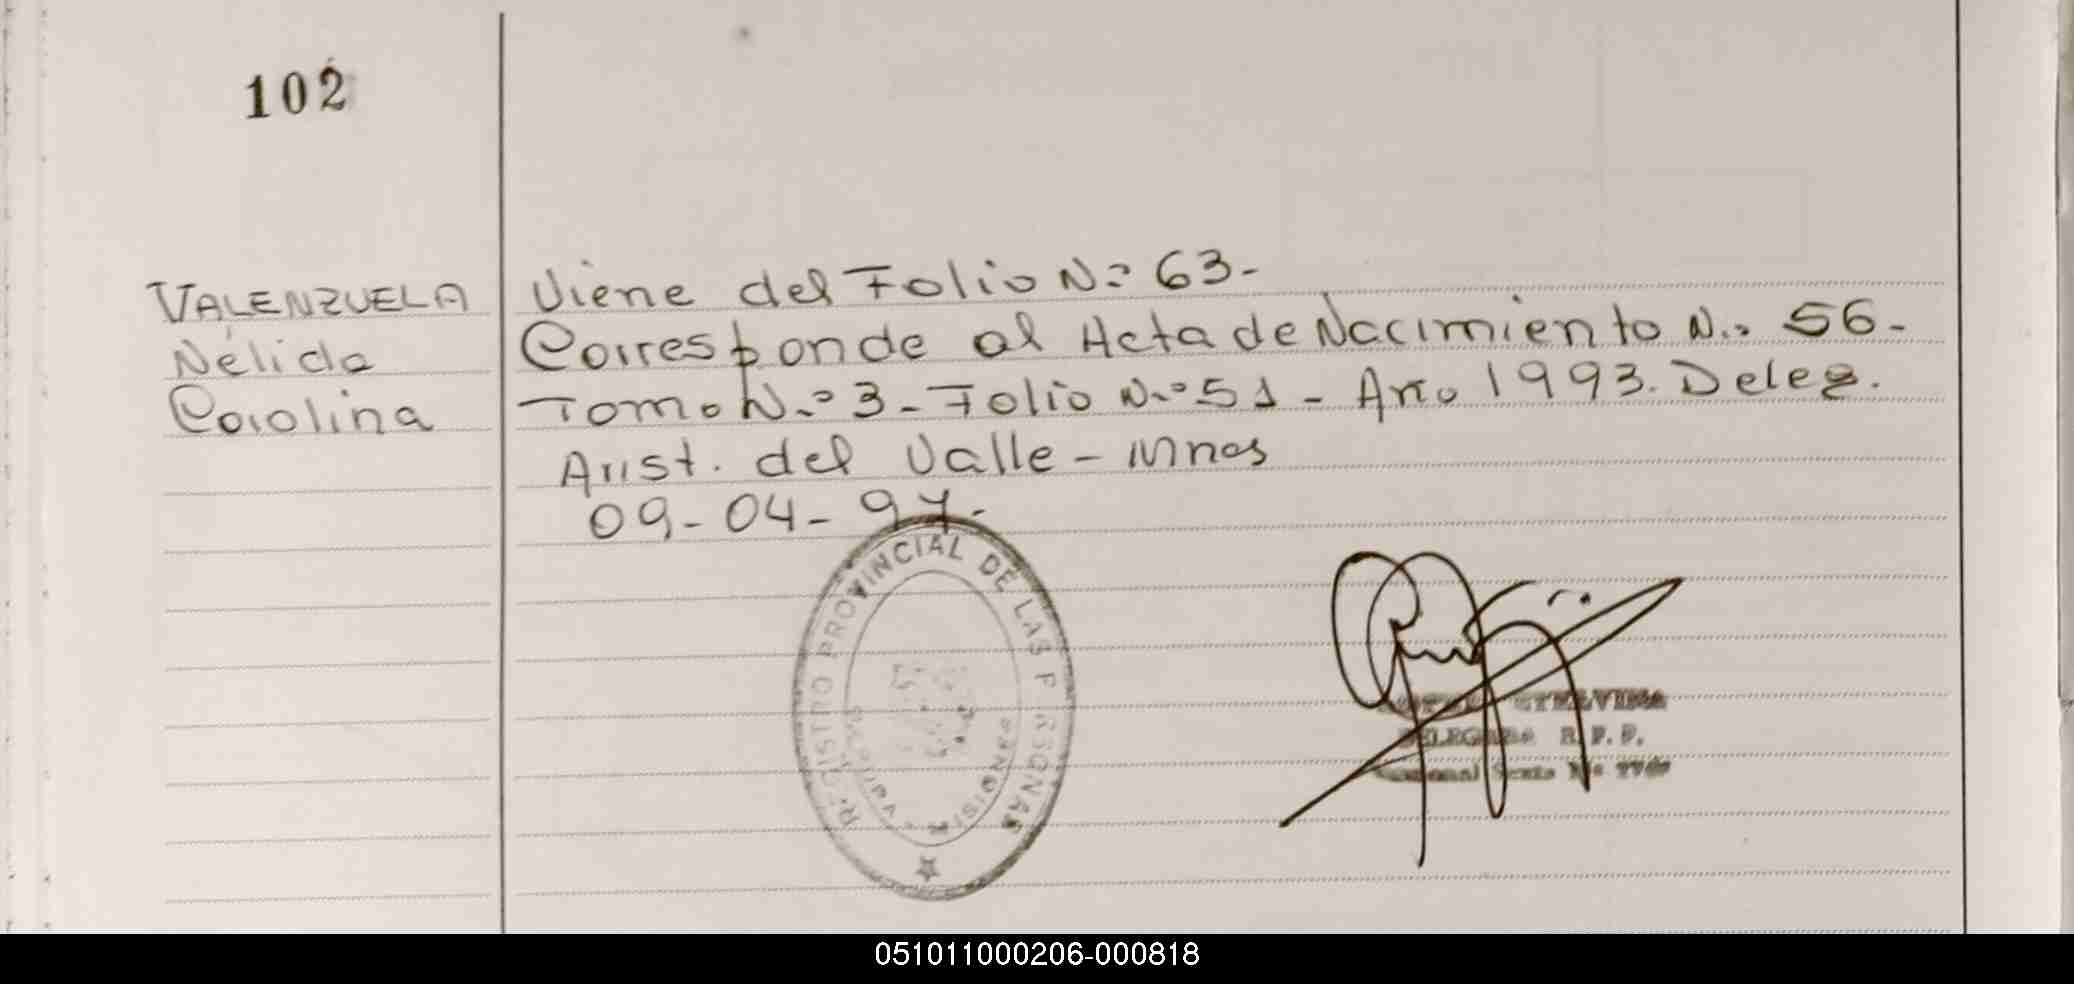 102
VALENZUELA
Nélida
Carolina
Viene del Folio N.º 63.-
Corresponde al Acta de Nacimiento N.º 56.-
Tomo N.º 3 - Folio N.º 51 - Año 1993. Deleg.
Arist. del Valle - Mnes
09-04-97.-
REGISTRO PROVINCIAL DE LAS PERSONAS
ETELVINA
DELEGADA R.P.P.
051011000206-000818